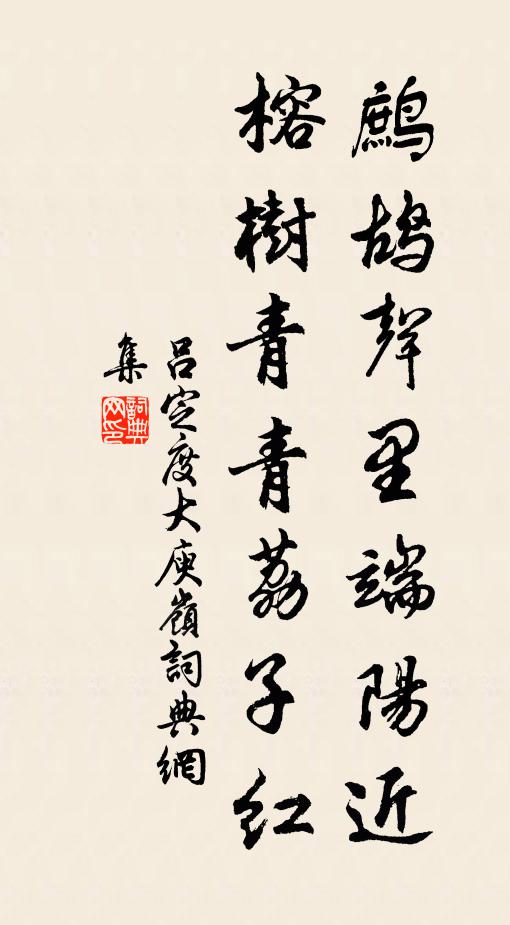 鷓鴣聲里端陽近
榕樹青青荔子紅
呂定度大庾嶺詞典網
集
詞典网印